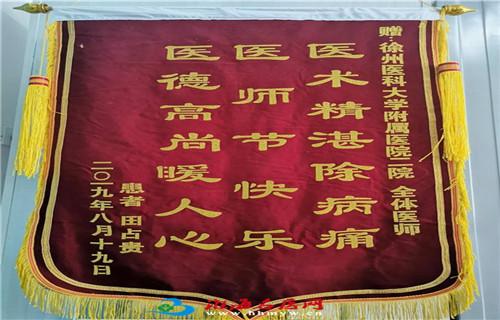 赠:徐州医科大学附属医院二院 全体医师
医术精湛除病痛
医师节快乐
医德高尚暖人心
患者 田占贵
二〇一九年八月十九日
www.hhmyw.cn